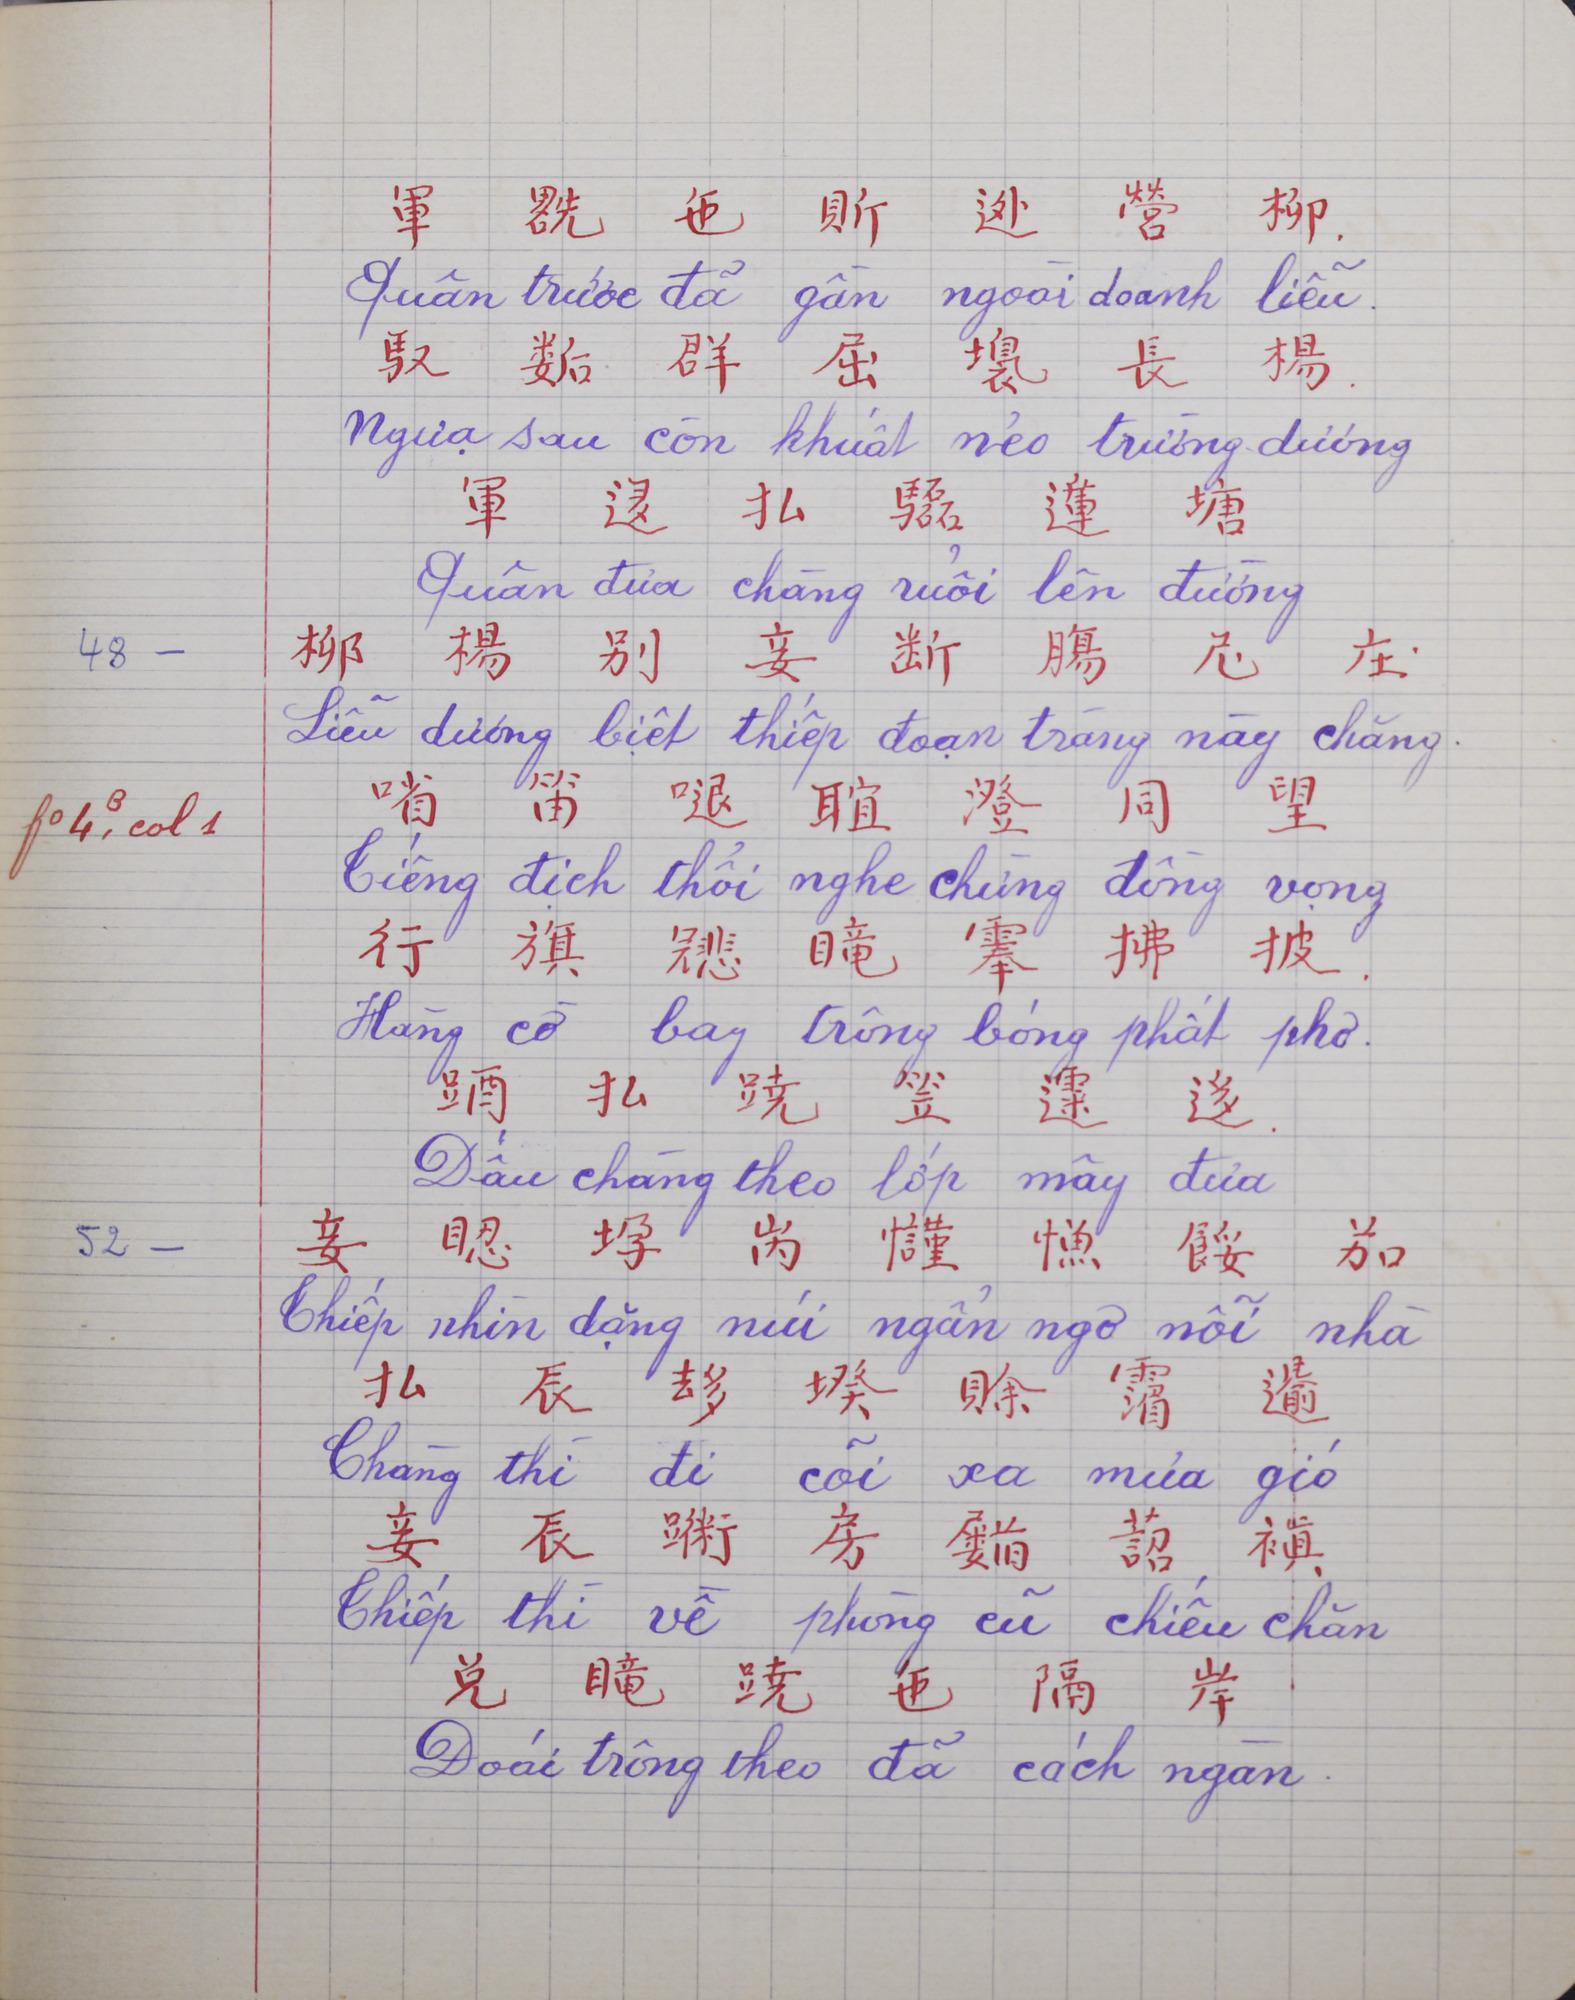 軍 𠠩 㐌 𧵆 𨖅 營 柳.
Quân trước đã gần ngoài doanh liễu.
馭 𡢐 群 屈 𡑖 長 楊.
Ngựa sau còn khuất nẻo trường dương
軍 迻 払 𩧍 𨖲 塘
Quân đưa chàng ruổi lên đường
48 — 柳 楊 別 妾 断 腸 尼 庄
Liễu dương biệt thiếp đoạn tràng này chăng.
fo 4B, col 1 𠸄 笛 𠺙 䀻 澄 同 望
Tiếng địch thổi nghe chừng đồng vọng
行 旗 𢒎 𥊣 𩄴 拂 披.
Hàng cờ bay trông bóng phất phơ.
𨁪 払 蹺 笠 𩄲 迻.
Dấu chàng theo lớp mây đưa
52 — 妾 𥆾 𡑓 𡶀 𢤞 𢠐 餒 茹
Thiếp nhìn dặng núi ngẩn ngơ nỗi nhà
払 辰 𠫾 𡎝 賒 𩅹 𨗺
Chàng thì đi cõi xa mưa gió
妾 辰 𧗱 房 𡳰 𧂭 禛
Thiếp thì về phòng cũ chiếu chăn
兑 𥊣 蹺 㐌 隔 岸
Đoái trông theo đã cách ngàn.